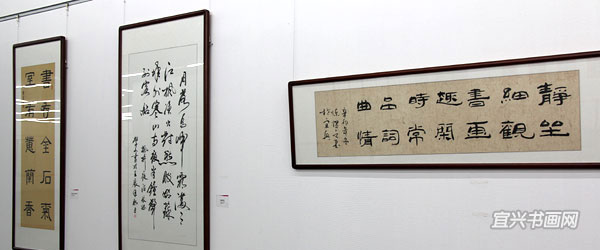 書有金石氣
室有蕙蘭香
月落烏啼霜滿天
江楓漁火對愁眠姑蘇
城外寒山寺夜半鐘聲
到客船
靜坐
細觀
書畫
趣閑
時常
品詞
曲情
宜兴书画网